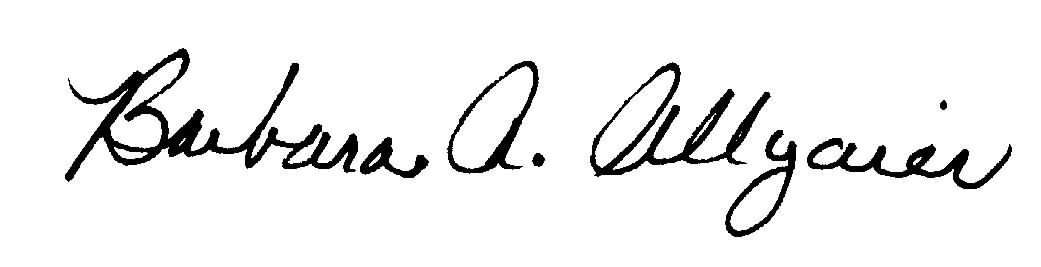 Barbara A. Allgaier